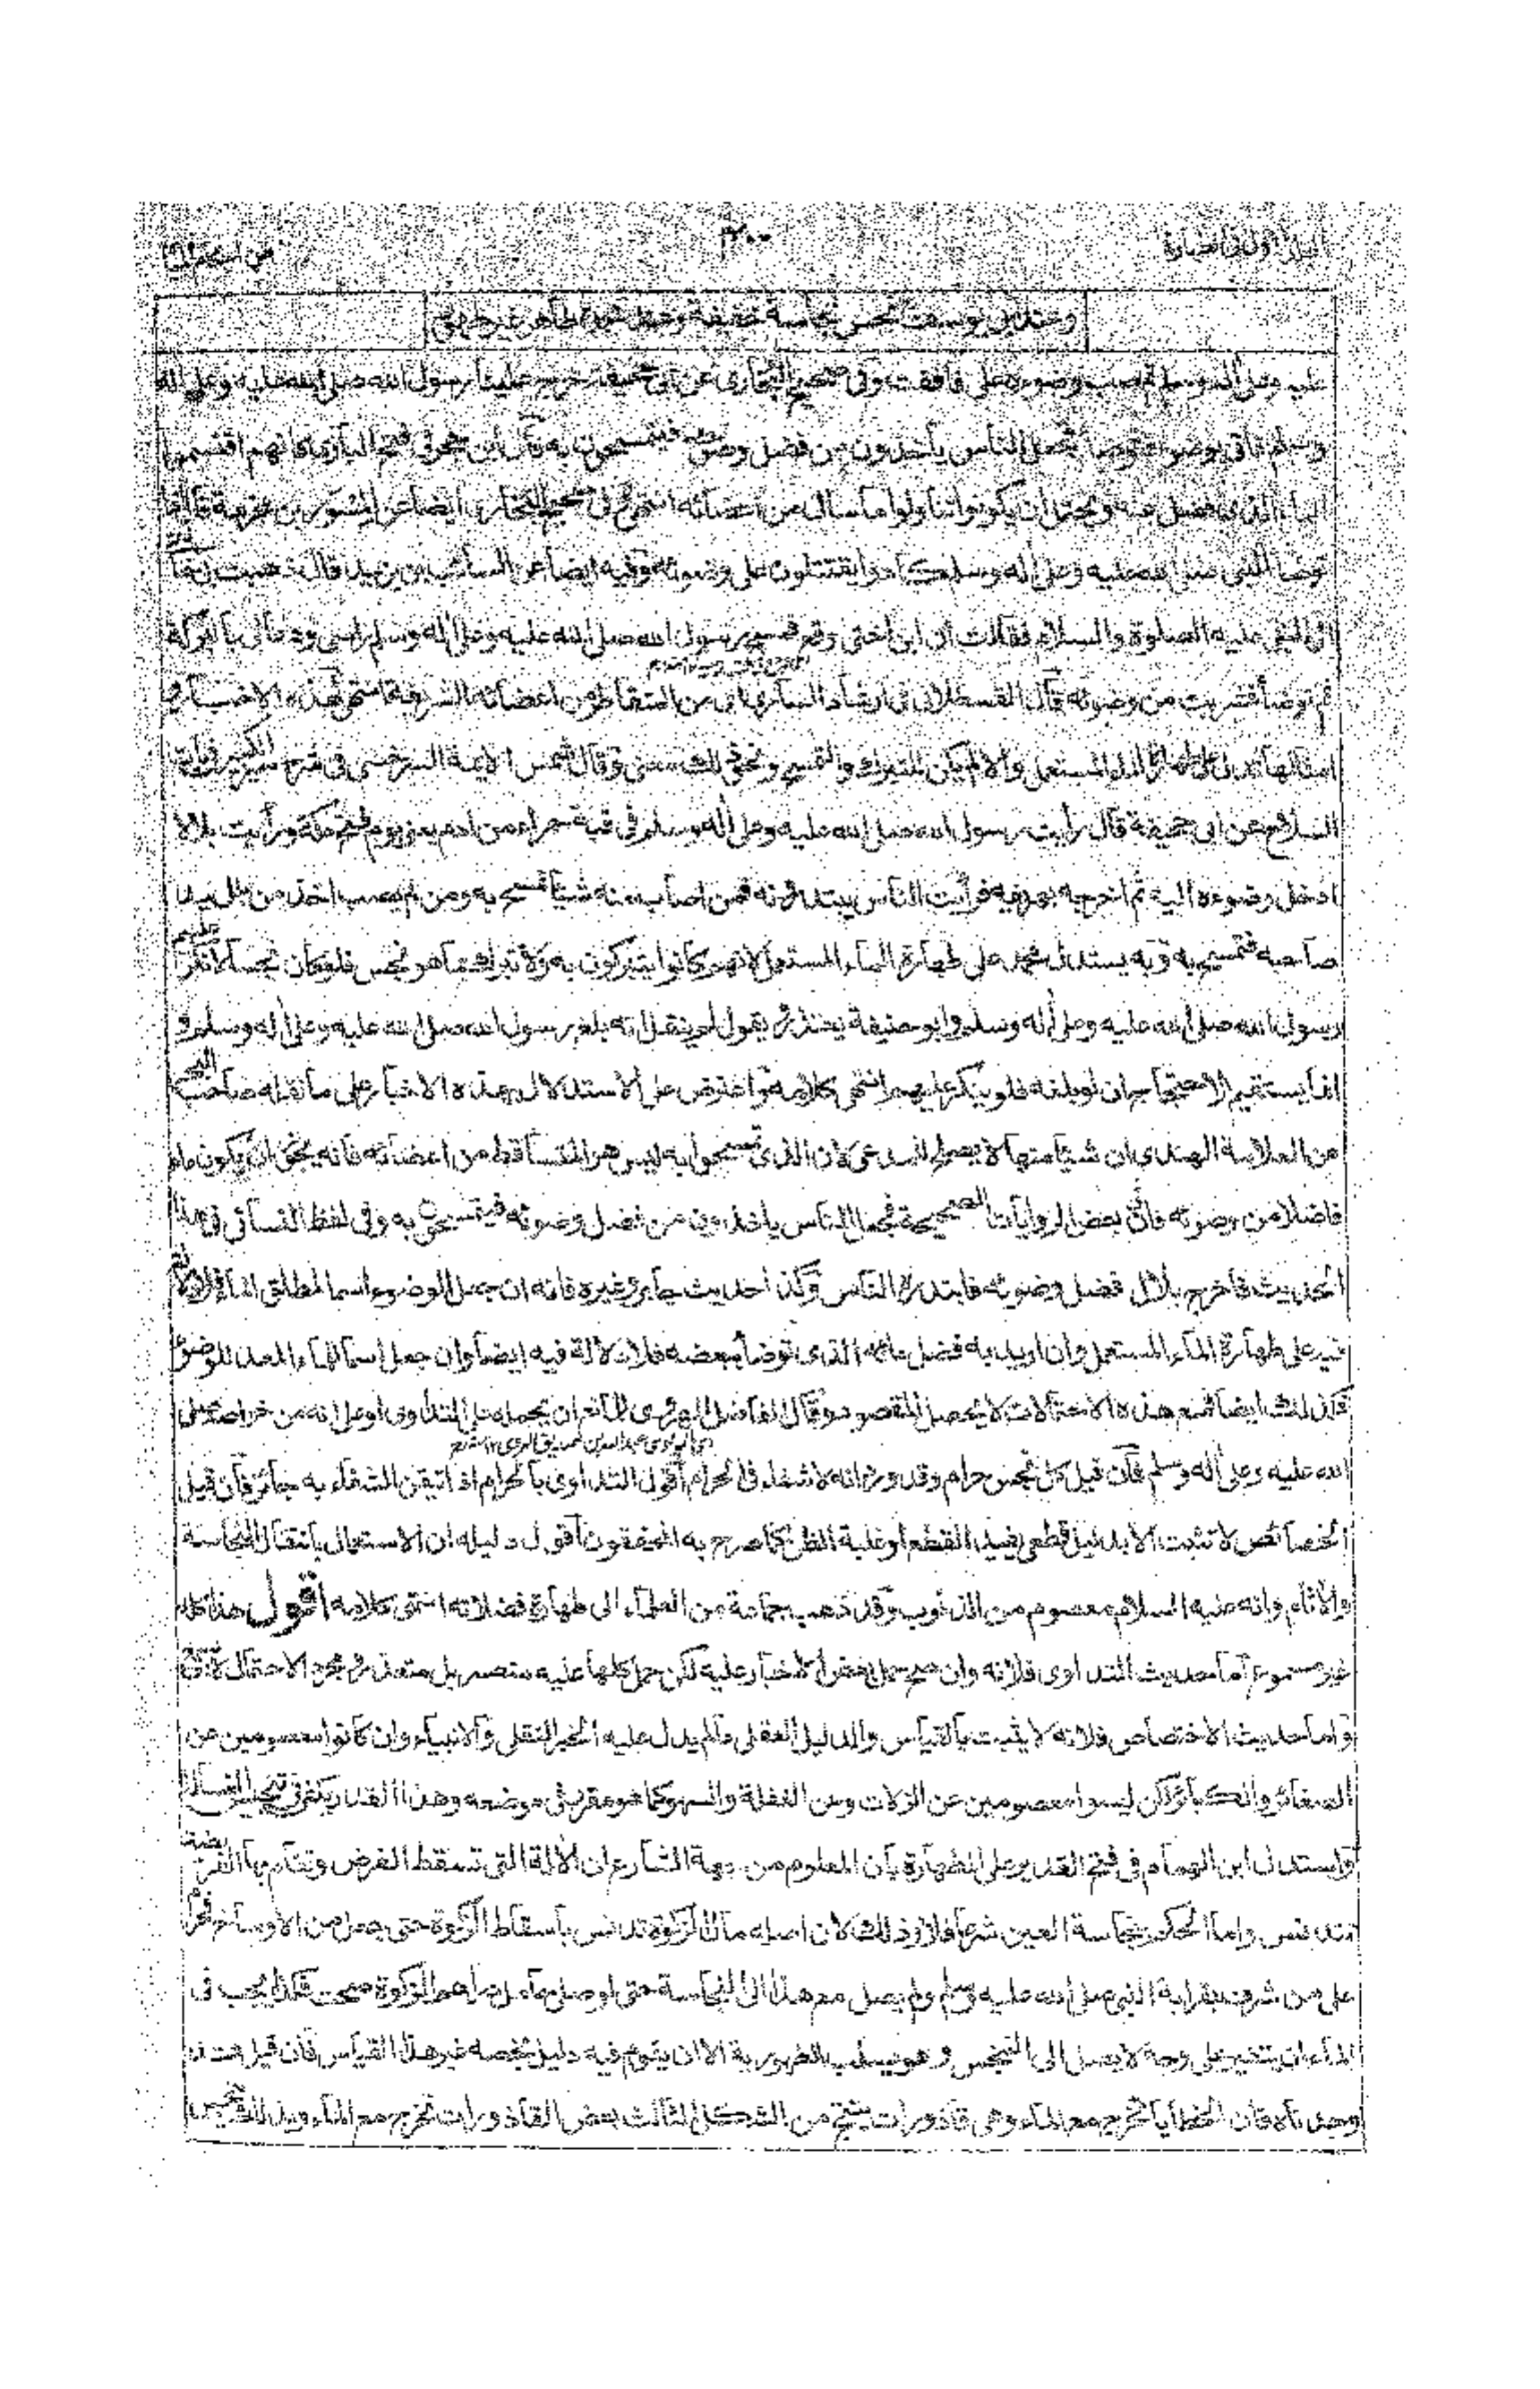 وعند ابی یوسف نجس نجاسة خفیفة وعند محمد طاهر غیر طهور
علیه وعلی اله وسلم ثم صب وضوءه علی فافقت وفی صحیح البخاری عن ابی جحیفة خرج علینا رسول الله صلی الله علیه وعلی اله
وسلم فاتی بوضوء فتوضأ فجعل الناس یأخذون من فضل وضوئه فیتمسحون به قال ابن حجر فی فتح الباری کانهم اقتسموا
الماء الذی فضل عنه ویحتمل ان یکونوا تناولوا ما سال من اعضائه انتهی وفی صحیح البخاری ایضا عن المسور بن مخرمة قال اذا
توضا النبی صلی الله علیه وعلی اله وسلم کادوا یقتتلون علی وضوئه وفیه ایضا عن السائب بن یزید قال ذهبت بی خالتی
الی النبی علیه الصلوة والسلام فقالت ان ابن اختی وقع فمسح رسول الله صلی الله علیه وعلی اله وسلم راسی ودعا لی بالبرکة
ثم توضأ فشربت من وضوئه قال القسطلانی فی ارشاد الساری ای من المتقاطر من اعضائه الشریفة انتهی فهذه الاخبار و
امثالها تدل علی طهارة الماء المستعمل والا لم یکن للتبرک والتمسح ونحو ذلک معنی وقال شمس الائمة السرخسی فی شرح السیر الکبیر
السلام عن ابی جحیفة قال رأیت رسول الله صلی الله علیه وعلی اله وسلم فی قبة حمراء من ادم یعنی یوم فتح مکة ورأیت بلالا
ادخل وضوءه الیه ثم اخرجه بهریقه فرأیت الناس یبتدرونه فمن اصاب منه شیئا تمسح به ومن لم یصب اخذ من بلل ید
صاحبه فتمسح به وبه یستدل محمد علی طهارة الماء المستعمل لانهم کانوا یتبرکون به ولا تبرک بما هو نجس فلو کان نجسا لانکر علیهم
رسول الله صلی الله علیه وعلی اله وسلم وابو حنیفة یعتذر ویقول لم ینقل انه بلغ رسول الله صلی الله علیه وعلی اله وسلم و
انما یستقیم الاحتجاج ان لو بلغه فلم ینکر علیهم انتهی کلامه واعترض علی الاستدلال بهذه الاخبار علی ما نقله صاحب البحر
من العلامة الهندی ان شیئا منها لا یصلح للمدعی لان الذی تمسحوا به لیس هو المتساقط من اعضائه فانه یجوز ان یکون ماء
فاضلا من وضوئه فان بعض الروایات الصحیحة فجعل الناس یاخذون من فضل وضوئه فیتمسحون به وفی لفظ النسائی فی هذا
الحدیث فاخرج بلال فضل وضوئه فابتدره الناس وکذا حدیث جابر وغیره فانه ان جعل الوضوء اسما لمطلق الماء فلا دلالة
فیه علی طهارة الماء المستعمل وان ارید به فضل مائه الذی توضأ ببعضه فلا دلالة فیه ایضا وان جعل اسما للماء المعد للوضوء
فکذلک ایضا فمع هذه الاحتمالات لا یحصل المقصود وقال الفاضل الهروی للمانع ان یحمله علی التداوی او علی انه من خواصه صلی
الله علیه وعلی اله وسلم فان قیل کل نجس حرام وقد ورد انه لا شفاء فی الحرام اقول التداوی بالحرام اذا تیقن الشفاء به جائز فان قیل
الخصائص لا تثبت الا بدلیل قطعی یفید القطع او غلبة الظن کما صرح به المحققون اقول دلیله ان الاستعمال بانتقال النجاسة
والآثام وانه علیه السلام معصوم من الذنوب وقد ذهب جماعة من العلماء الی طهارة فضلاته انتهی کلامه اقول هذا کله
غیر مسموع اما حدیث التداوی فلانه وان صح حمل بعض الاخبار علیه لکن حمل کلها علیه متعسر بل متعذر ومجرد الاحتمال لا
واما حدیث الاختصاص فلانه لا یثبت بالقیاس والدلیل العقلی ما لم یدل علیه الخبر النقلی والانبیاء وان کانوا معصومین عن
الصغائر والکبائر لکن لیسوا معصومین عن الزلات وعن الغفلة والسهو کما هو مقرر فی موضعه وهذا القدر یکفی فی تنجیس الغسالة
واستدل ابن الهمام فی فتح القدیر علی الطهارة بان المعلوم من جهة الشارع ان الآلة التی تسقط الفرض وتقام بها القربة
تتدنس واما الحکم بنجاسة العین شرعا فلا وذلک لان اصله مال الزکوة تدنس باسقاط الزکوة حتی جعل من الاوساخ فحرم
علی من شرف بقرابة النبی صلی الله علیه وسلم ولم یصل مع هذا الی النجاسة حتی لو صلی حامل دراهم الزکوة صحت فکذا یجب فی
الماء ان یتغیر علی وجه لا یصل الی التنجیس وهو یسلب الطهوریة الا ان یقوم فیه دلیل یخصه غیر هذا القیاس فان قیل قد
وجدناه فان الخطایا تخرج مع الماء وهی قاذورات ینتج من الشکل الثالث بعض القاذورات تخرج مع الماء